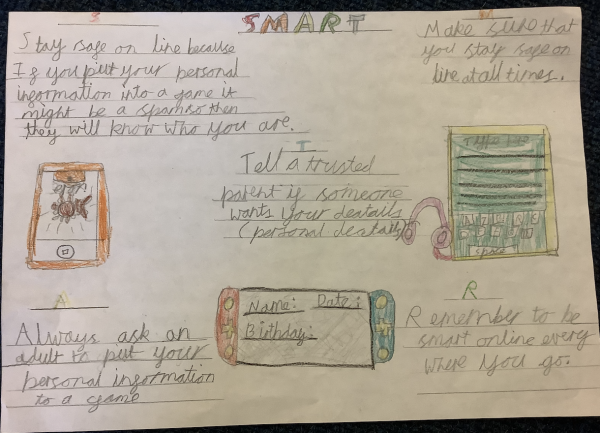 SMART
S
Stay safe on line because
If you put your personal
information into a game it
might be a spam so then
they will know who you are.
M
Make sure that
you stay safe on
line at all times.
T
Tell a trusted
parent if someone
wants your deatails
(personal deatails)
A
Always ask an
adult to put your
personal information
to a game
Name: Date:
Birthday:
R
Remember to be
smart online every
where you go.
space